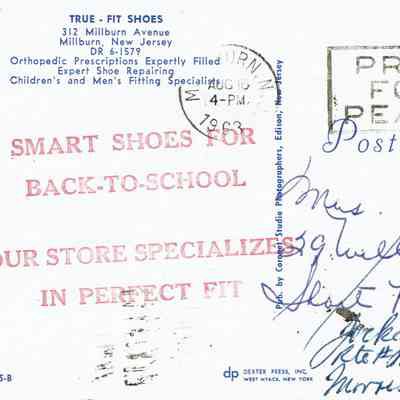 TRUE - FIT SHOES
312 Millburn Avenue
Millburn, New Jersey
DR 6-1579
Orthopedic Prescriptions Expertly Filled
Expert Shoe Repairing
Children's and Men's Fitting Specialists
AUG 16
4-PM
1963
PR
FO
PEA
SMART SHOES FOR
BACK-TO-SCHOOL
OUR STORE SPECIALIZES
IN PERFECT FIT
Pub. by Coronet Studio Photographers, Edison, New Jersey
Post
Mrs.
Short
5-B
dp DEXTER PRESS, INC.
WEST NYACK, NEW YORK